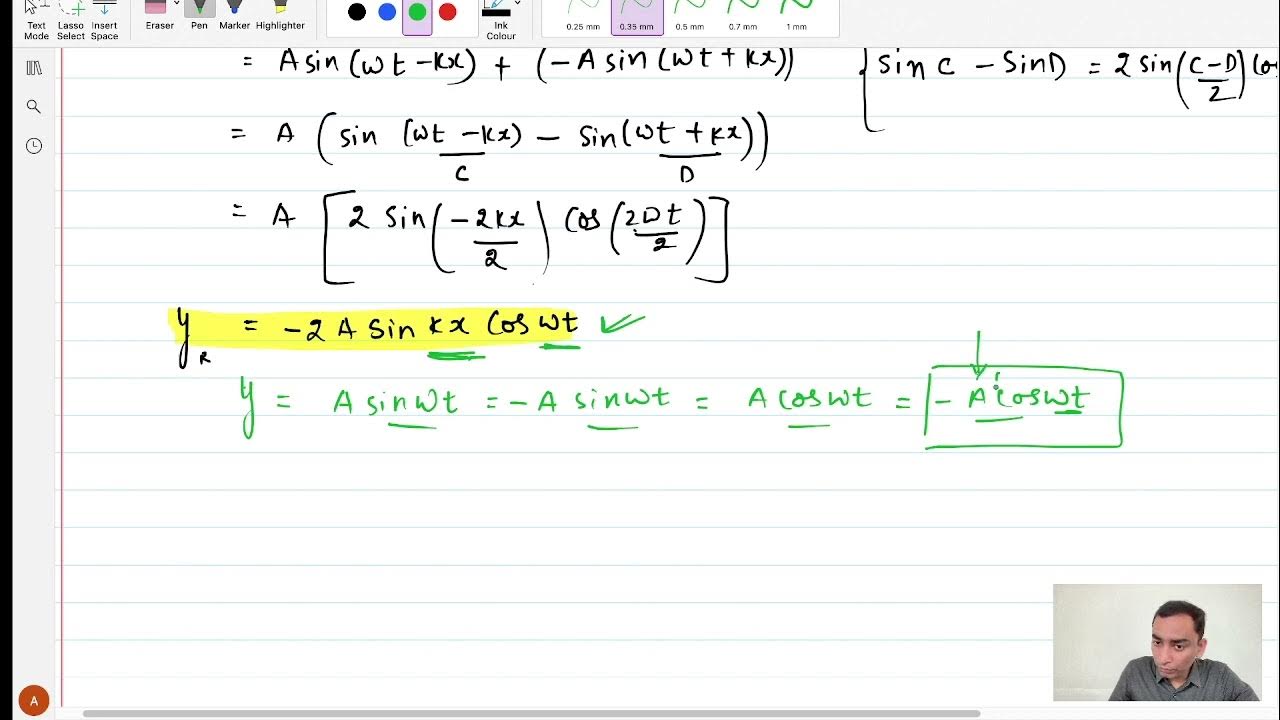 Text Mode Lasso Select Insert Space Eraser Pen Marker Highlighter Ink Colour 0.25 mm 0.35 mm 0.5 mm 0.7 mm 1 mm
= A sin (ωt - kx) + (- A sin (ωt + kx)) { sin C - sin D = 2 sin (C-D)/2
= A ( sin (ωt - kx) - sin (ωt + kx) )
C D
= A [ 2 sin ( -2kx / 2 ) cos ( 2ωt / 2 ) ]
y_R = -2 A sin kx cos ωt ✓
y = A sin ωt = - A sin ωt = A cos ωt = - A' cos ωt
A